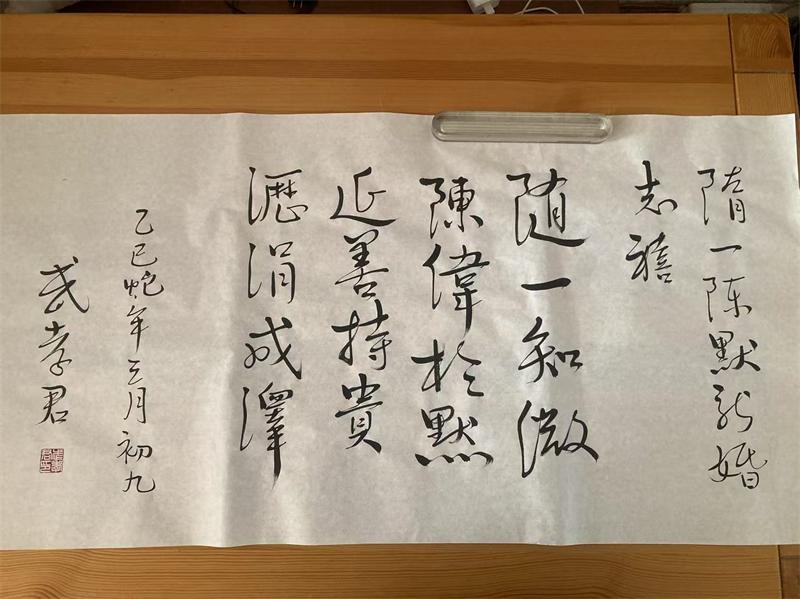 隋一陈默新婚
志禧
随一知微
陳偉於默
延善持貴
瀝涓成澤
乙巳蛇年三月初九
武孝君